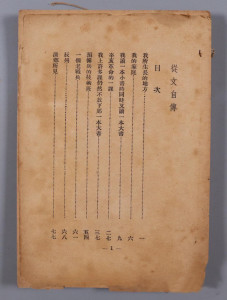 從文自傳
目次
我所生長的地方………一
我的家庭………六
我讀一本小書同時又讀一本大書………九
辛亥革命的一課………二七
我上許多課仍然不放下那一本大書………三七
預備兵的技術班………五四
一個老戰兵………六一
辰州………六八
清鄉所見………七七
— 1 —